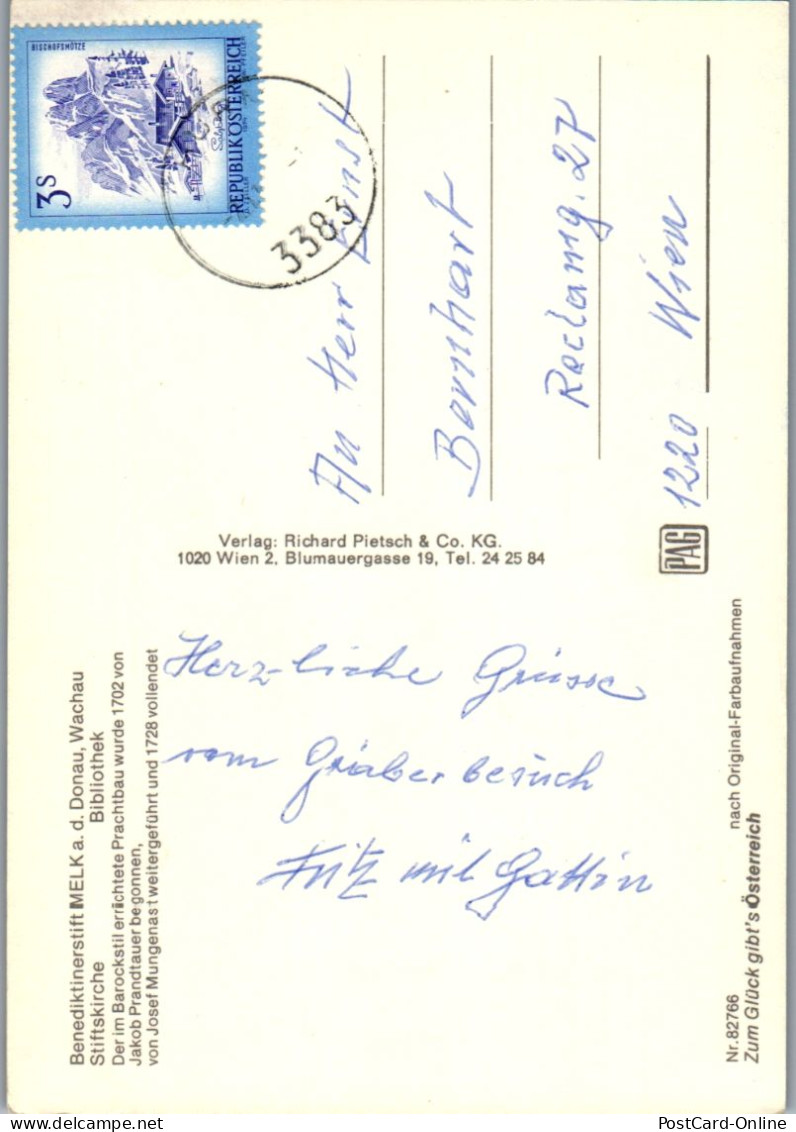 BISCHOFSMÜTZE
3S
REPUBLIK ÖSTERREICH
3383
An Herr Ernst
Bernhart
Reclamg. 27
1220 Wien
PAG
Verlag: Richard Pietsch & Co. KG.
1020 Wien 2, Blumauergasse 19, Tel. 24 25 84
Herzliche Grüsse
vom Gräberbesuch
Fritz mit Gattin
Benediktinerstift MELK a. d. Donau, Wachau
Stiftskirche Bibliothek
Der im Barockstil errichtete Prachtbau wurde 1702 von
Jakob Prandtauer begonnen,
von Josef Mungenast weitergeführt und 1728 vollendet
Nr. 82766 nach Original-Farbaufnahmen
Zum Glück gibt's Österreich
PostCard-Online